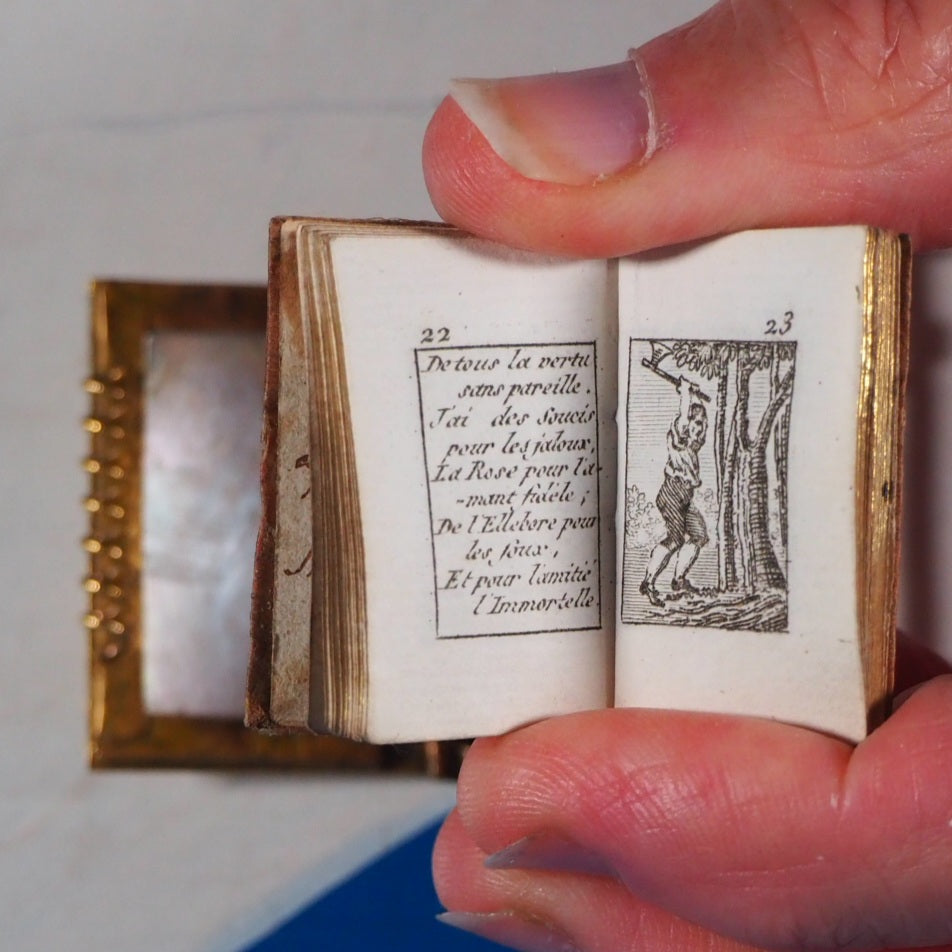 22
De tous la vertu
sans pareille.
J'ai des Soucis
pour les jaloux,
La Rose pour l'a-
-mant fidéle ;
De l'Ellebore pour
les foux,
Et pour l'amitié
l'Immortelle.
23